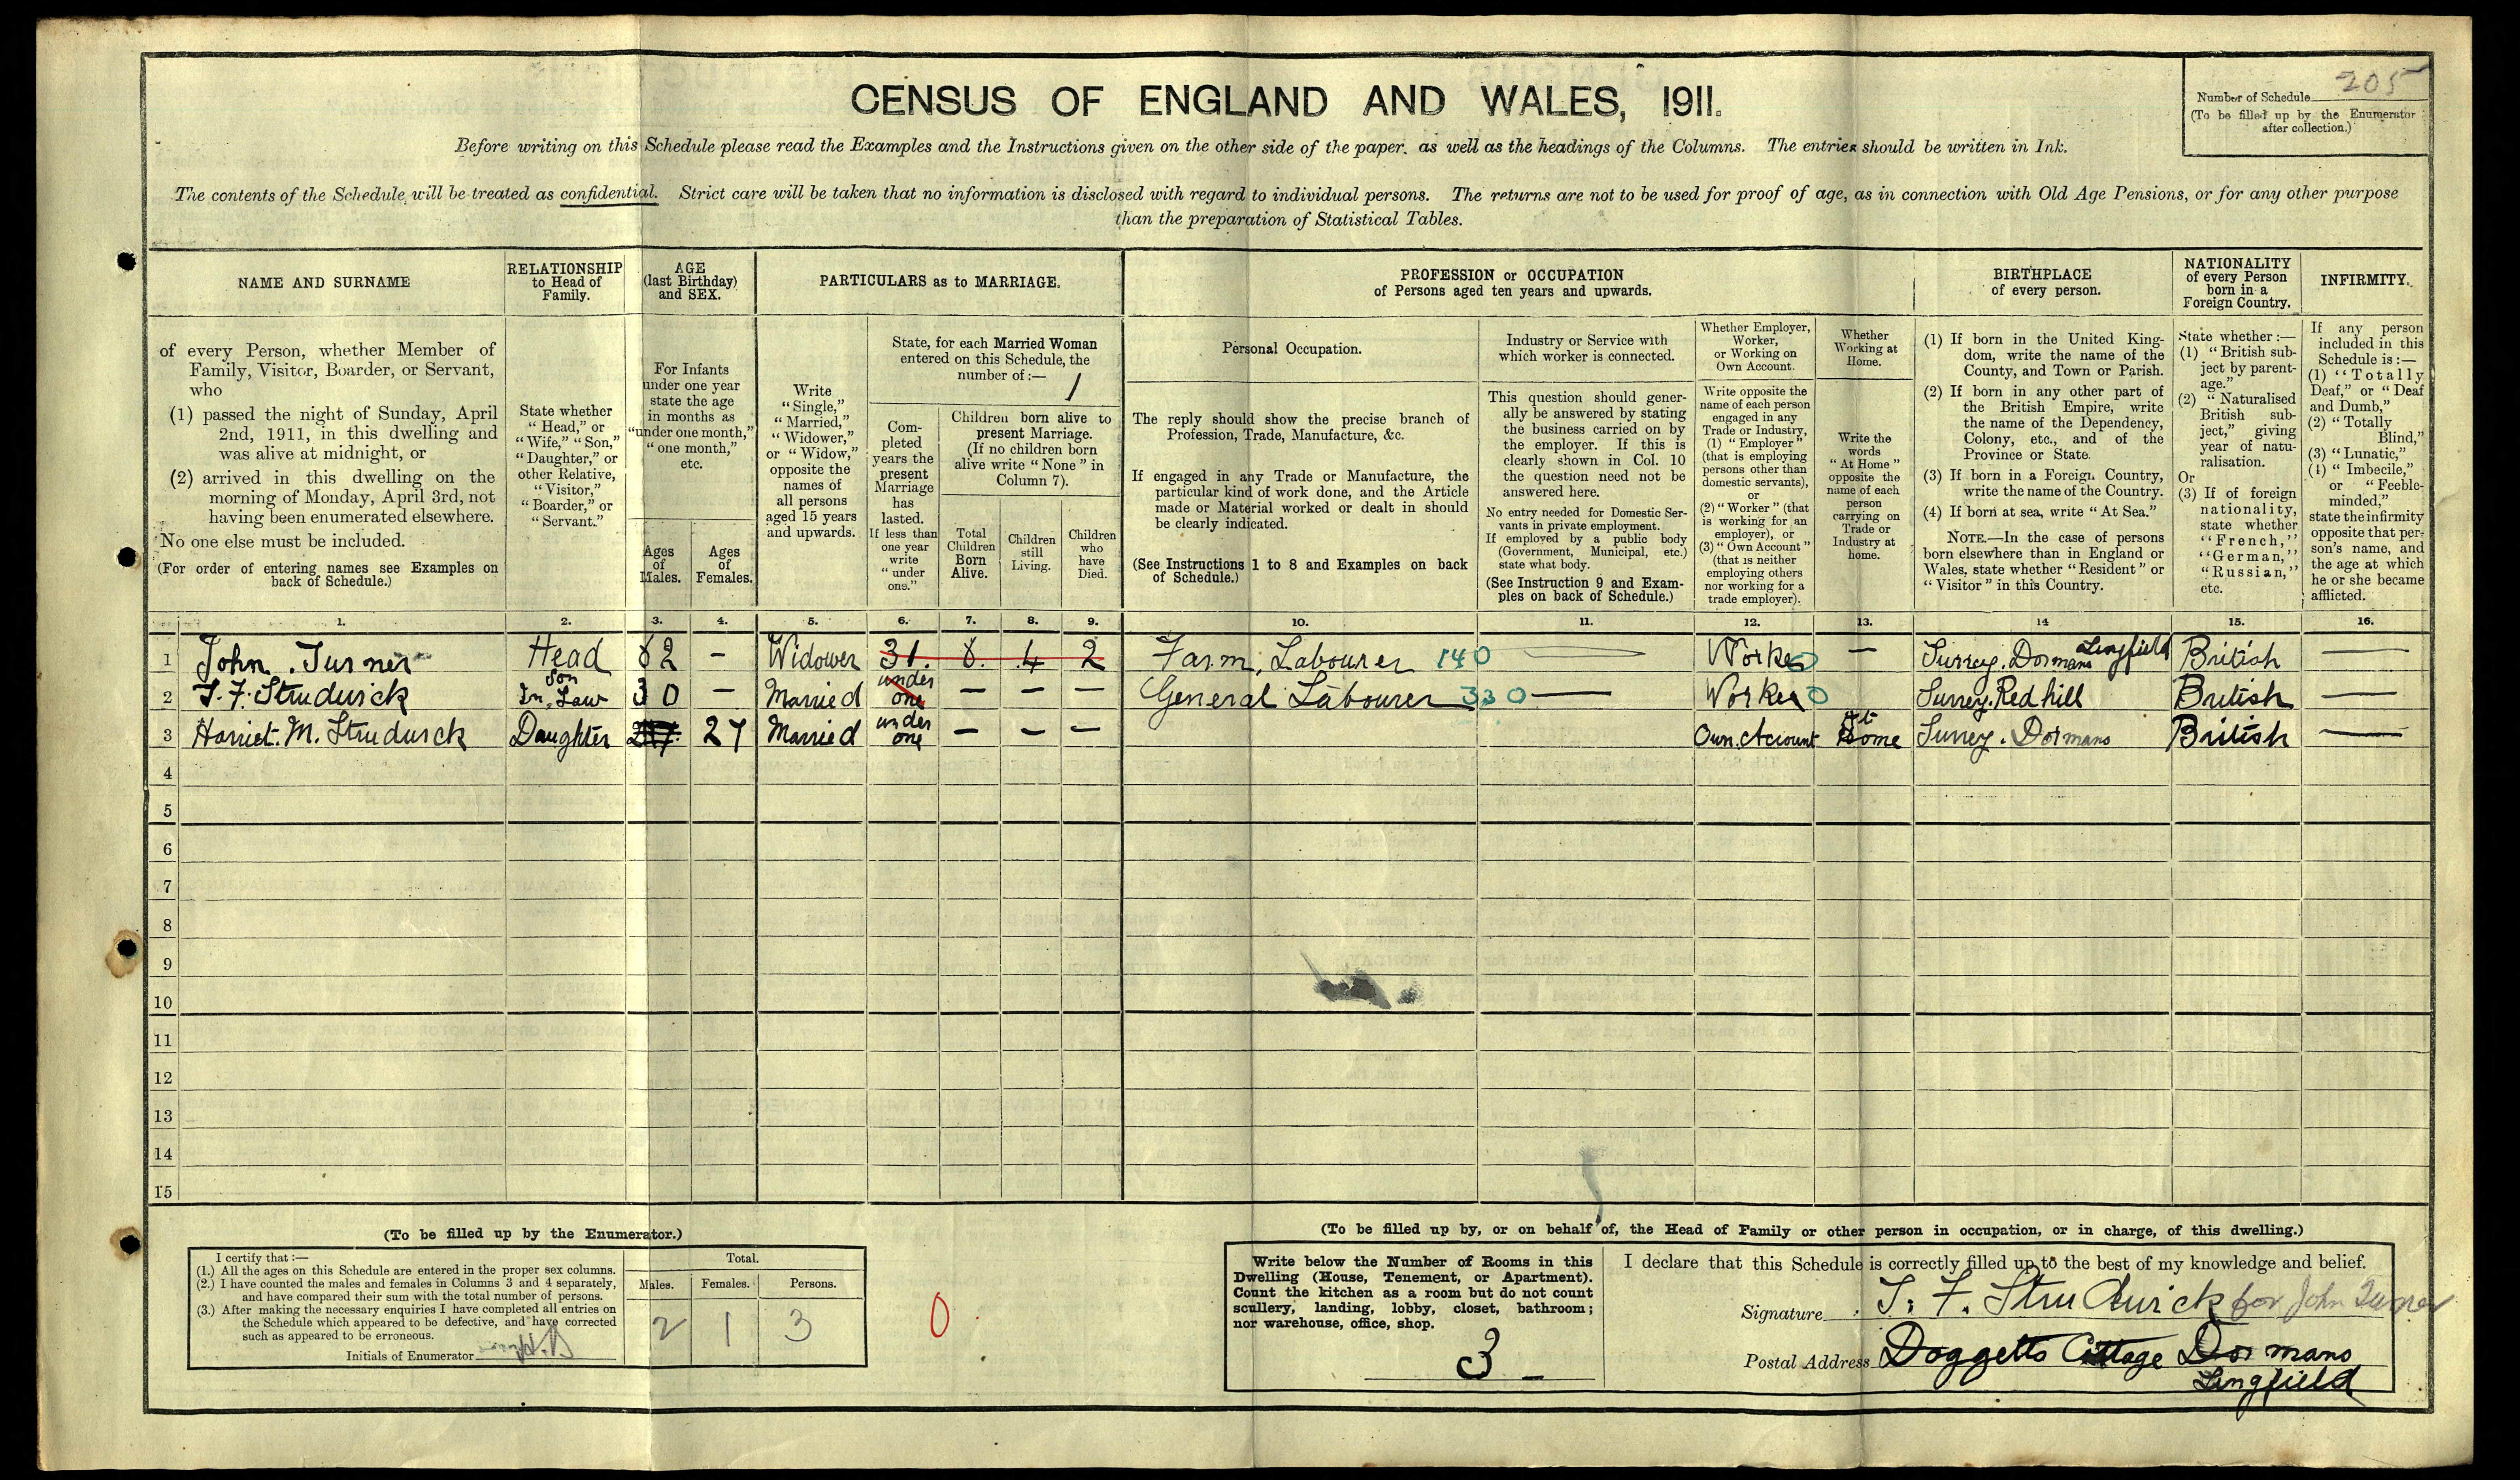 CENSUS OF ENGLAND AND WALES, 1911.
Number of Schedule 205
(To be filled up by the Enumerator
after collection.)
Before writing on this Schedule please read the Examples and the Instructions given on the other side of the paper, as well as the headings of the Columns. The entries should be written in Ink.
The contents of the Schedule will be treated as confidential. Strict care will be taken that no information is disclosed with regard to individual persons. The returns are not to be used for proof of age, as in connection with Old Age Pensions, or for any other purpose
than the preparation of Statistical Tables.
NAME AND SURNAME
of every Person, whether Member of
Family, Visitor, Boarder, or Servant,
who
(1) passed the night of Sunday, April
2nd, 1911, in this dwelling and
was alive at midnight, or
(2) arrived in this dwelling on the
morning of Monday, April 3rd, not
having been enumerated elsewhere.
No one else must be included.
(For order of entering names see Examples on
back of Schedule.)
RELATIONSHIP
to Head of
Family.
State whether
"Head," or
"Wife," "Son,"
"Daughter," or
other Relative,
"Visitor,"
"Boarder," or
"Servant."
AGE
(last Birthday)
and SEX.
For Infants
under one year
state the age
in months as
"under one month,"
"one month,"
etc.
Ages
of
Males.
Ages
of
Females.
PARTICULARS as to MARRIAGE.
Write
"Single,"
"Married,"
"Widower,"
or "Widow,"
opposite the
names of
all persons
aged 15 years
and upwards.
State, for each Married Woman
entered on this Schedule, the
number of :—
1
Com-
pleted
years the
present
Marriage
has
lasted.
If less than
one year
write
"under
one."
Children born alive to
present Marriage.
(If no children born
alive write "None" in
Column 7).
Total
Children
Born
Alive.
Children
still
Living.
Children
who
have
Died.
PROFESSION or OCCUPATION
of Persons aged ten years and upwards.
Personal Occupation.
The reply should show the precise branch of
Profession, Trade, Manufacture, &c.
If engaged in any Trade or Manufacture, the
particular kind of work done, and the Article
made or Material worked or dealt in should
be clearly indicated.
(See Instructions 1 to 8 and Examples on back
of Schedule.)
Industry or Service with
which worker is connected.
This question should gener-
ally be answered by stating
the business carried on by
the employer. If this is
clearly shown in Col. 10
the question need not be
answered here.
No entry needed for Domestic Ser-
vants in private employment.
If employed by a public body
(Government, Municipal, etc.)
state what body.
(See Instruction 9 and Exam-
ples on back of Schedule.)
Whether Employer,
Worker,
or Working on
Own Account.
Write opposite the
name of each person
engaged in any
Trade or Industry,
(1) "Employer"
(that is employing
persons other than
domestic servants),
or
(2) "Worker" (that
is working for an
employer), or
(3) "Own Account"
(that is neither
employing others
nor working for a
trade employer).
Whether
Working at
Home.
Write the
words
"At Home"
opposite the
name of each
person
carrying on
Trade or
Industry at
home.
BIRTHPLACE
of every person.
(1) If born in the United King-
dom, write the name of the
County, and Town or Parish.
(2) If born in any other part of
the British Empire, write
the name of the Dependency,
Colony, etc., and of the
Province or State.
(3) If born in a Foreign Country,
write the name of the Country.
(4) If born at sea, write "At Sea."
NOTE.—In the case of persons
born elsewhere than in England or
Wales, state whether "Resident" or
"Visitor" in this Country.
NATIONALITY
of every Person
born in a
Foreign Country.
State whether :—
(1) "British sub-
ject by parent-
age."
(2) "Naturalised
British sub-
ject," giving
year of natu-
ralisation.
Or
(3) If of foreign
nationality,
state whether
"French,"
"German,"
"Russian,"
etc.
INFIRMITY.
If any person
included in this
Schedule is :—
(1) "Totally
Deaf," or "Deaf
and Dumb,"
(2) "Totally
Blind,"
(3) "Lunatic,"
(4) "Imbecile,"
or "Feeble-
minded,"
state the infirmity
opposite that per-
son's name, and
the age at which
he or she became
afflicted.
1. 2. 3. 4. 5. 6. 7. 8. 9. 10. 11. 12. 13. 14 15. 16.
1 John Turner Head 62 — Widower 31. 6. 4 2 Farm Labourer 140 — Worker 0 — Surrey. Dormans Lingfield British —
2 T. F. Strudwick Son In Law 30 — Married under one — — — General Labourer 330 — Worker 0 Surrey. Redhill British —
3 Harriet. M. Strudwick Daughter 27 Married under one — — — Own. Account At Home Surrey. Dormans British —
4
5
6
7
8
9
10
11
12
13
14
15
(To be filled up by the Enumerator.)
I certify that :—
(1.) All the ages on this Schedule are entered in the proper sex columns.
(2.) I have counted the males and females in Columns 3 and 4 separately,
and have compared their sum with the total number of persons.
(3.) After making the necessary enquiries I have completed all entries on
the Schedule which appeared to be defective, and have corrected
such as appeared to be erroneous.
Initials of Enumerator
Total.
Males. Females. Persons.
2 1 3
0
(To be filled up by, or on behalf of, the Head of Family or other person in occupation, or in charge, of this dwelling.)
Write below the Number of Rooms in this
Dwelling (House, Tenement, or Apartment).
Count the kitchen as a room but do not count
scullery, landing, lobby, closet, bathroom;
nor warehouse, office, shop.
3
I declare that this Schedule is correctly filled up to the best of my knowledge and belief.
Signature T. F. Strudwick for John Turner
Postal Address Doggetts Cottage Dormans
Lingfield